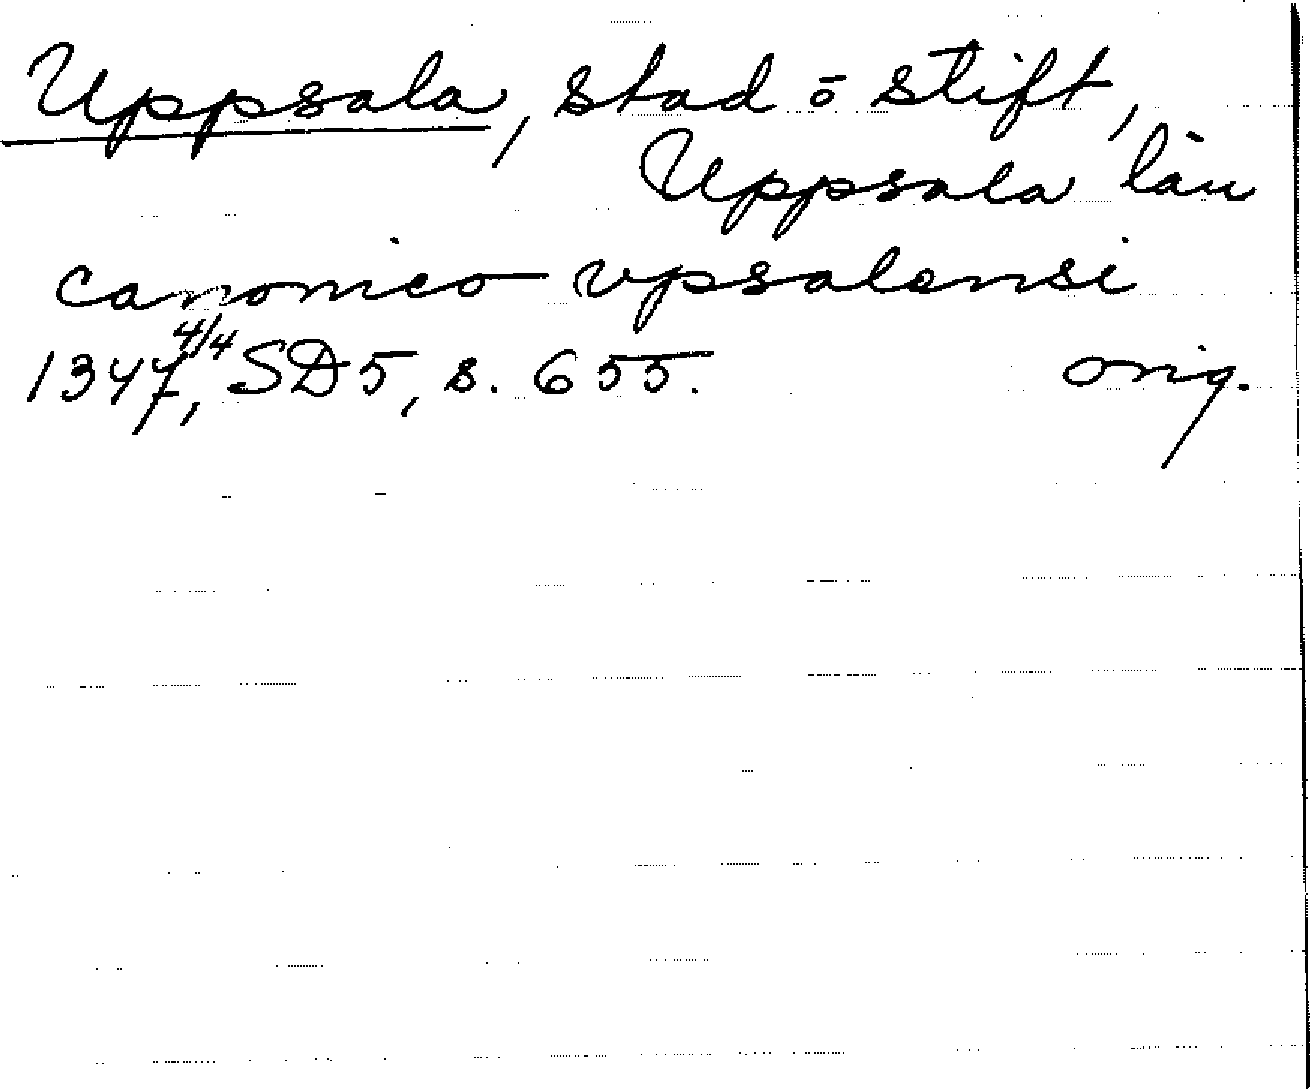 Uppsala, stad o stift,
Uppsala län
canonico vpsalensi
1347 4/4, SD5, s. 655. orig.